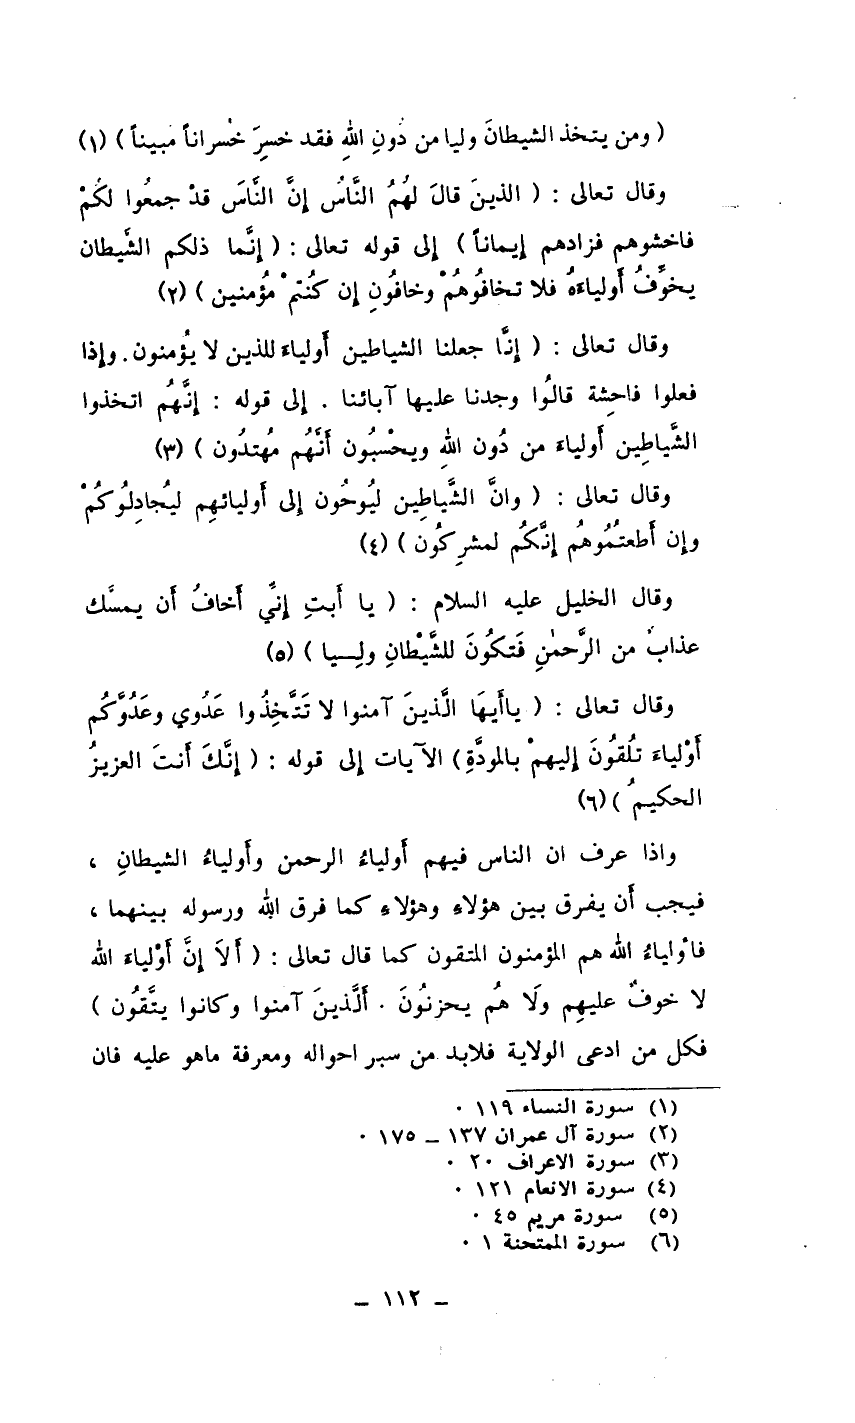 ( ومن يتخذ الشيطانَ وليا من دُونِ اللهِ فقد خسِرَ خْسراناً مبيناً ) (١)
وقال تعالى : ( الذينَ قالَ لهُمُ النَّاسُ إنَّ النَّاسَ قدْ جمعُوا لكُمْ
فاخشوهم فزادهم إيماناً ) إلى قوله تعالى : ( إنَّما ذلكم الشَّيطان
يخوِّفُ أولياءَهُ فلا تخافُوهُمْ وخافُونِ إن كُنتمْ مؤمنين ) (٢)
وقال تعالى : ( إنَّا جعلنا الشياطين أولياءَ للذين لا يؤمنون . وإذا
فعلوا فاحِشة قالُوا وجدنا عليها آبائنا . إلى قوله : إنَّهُم اتخذوا
الشَّياطِين أولياءَ من دُون اللهِ ويحْسبُون أنَّهُم مُهتدُون ) (٣)
وقال تعالى : ( وانَّ الشَّياطِين ليُوحُون إلى أوليائهِم ليُجادِلُوكُمْ
وإن أطعتُمُوهُم إنَّكُم لمشرِكُون ) (٤)
وقال الخليل عليه السلام : ( يا أبتِ إنيِّ أخافُ أن يمسَّك
عذابٌ من الرَّحمٰنِ فَتكُونَ للشَّيْطانِ ولِيا ) (٥)
وقال تعالى : ( ياأيهَا الَّذينَ آمنوا لا تَتَّخِذُوا عَدُوي وعَدُوَّكُم
أوْلياءَ تلُقُونَ إليهمْ بالمودَّةِ ) الآيات إلى قوله : ( إنَّكَ أنتَ العزيزُ
الحكيمُ ) (٦)
واذا عرف ان الناس فيهم أولياءُ الرحمن وأولياءُ الشيطانِ ،
فيجب أن يفرق بين هؤلاءِ وهؤلاءِ كما فرق الله ورسوله بينهما ،
فأولياءُ الله هم المؤمنون المتقون كما قال تعالى : ( ألَا إنَّ أوْلياءَ الله
لا خوفٌ عليهِم ولَا هُم يحزنُونَ . ألَّذينَ آمنوا وكانوا يتَّقُون )
فكل من ادعى الولاية فلابد من سبر احواله ومعرفة ماهو عليه فان
(١) سورة النساء ١١٩ ٠
(٢) سورة آل عمران ١٣٧ ـ ١٧٥ ٠
(٣) سورة الاعراف ٢٠ ٠
(٤) سورة الانعام ١٢١ ٠
(٥) سورة مريم ٤٥ ٠
(٦) سورة الممتحنة ١ ٠
ـ ١١٢ ـ